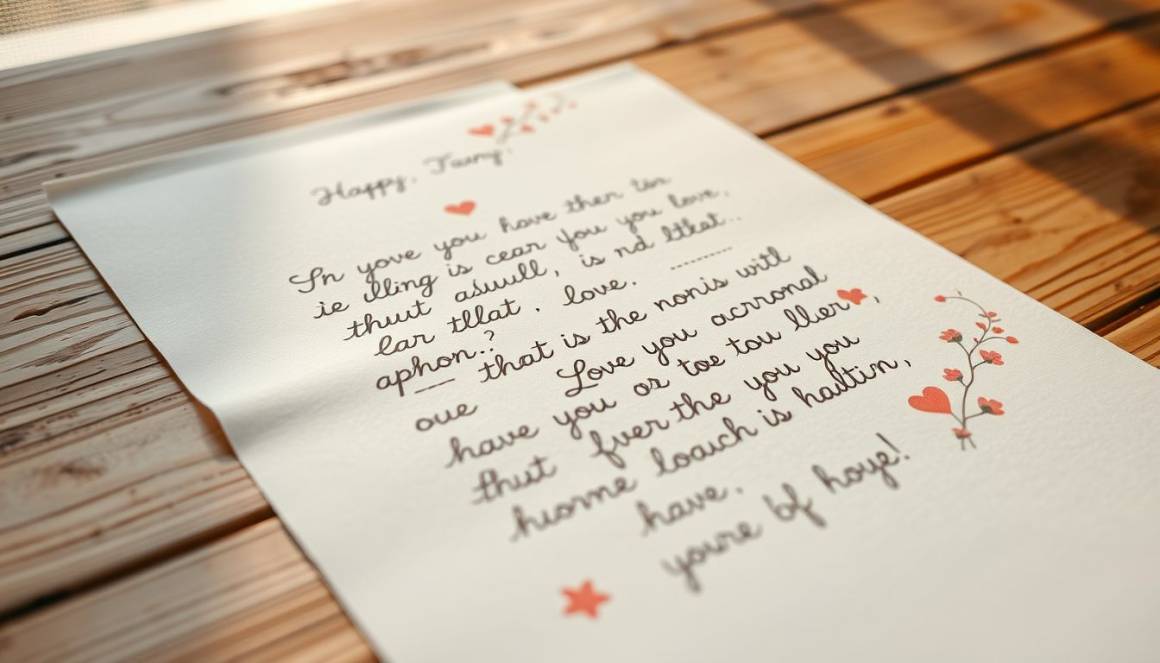 Happy, Tauny.
In yove you have then tor
ie illing is cear you you love,
thuut asuull, is nd ltlat..
lar tllat. love.
aphon.:? that is the nonis witl
oue Love you acrronal
have you or toe tou ller,
thut fver the you you
huome loauch is haltin,
have.
youre bf hoye!